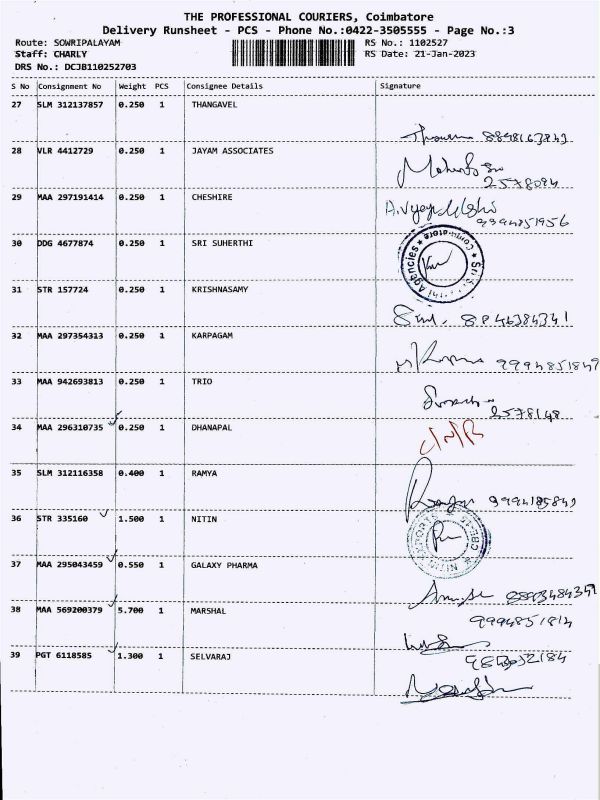 THE PROFESSIONAL COURIERS, Coimbatore
Delivery Runsheet - PCS - Phone No.:0422-3505555 - Page No.:3
Route: SOWRIPALAYAM RS No.: 1102527
Staff: CHARLY RS Date: 21-Jan-2023
DRS No.: DCJB110252703
S No Consignment No Weight PCS Consignee Details Signature
27 SLM 312137857 0.250 1 THANGAVEL
28 VLR 4412729 0.250 1 JAYAM ASSOCIATES
2578094
29 MAA 297191414 0.250 1 CHESHIRE
9394851956
30 DDG 4677874 0.250 1 SRI SUHERTHI
31 STR 157724 0.250 1 KRISHNASAMY
32 MAA 297354313 0.250 1 KARPAGAM
9994851849
33 MAA 942693813 0.250 1 TRIO
2578148
34 MAA 296310735 0.250 1 DHANAPAL
35 SLM 312116358 0.400 1 RAMYA
36 STR 335160 1.500 1 NITIN
37 MAA 295043459 0.550 1 GALAXY PHARMA
38 MAA 569200379 5.700 1 MARSHAL
9994851814
39 PGT 6118585 1.300 1 SELVARAJ